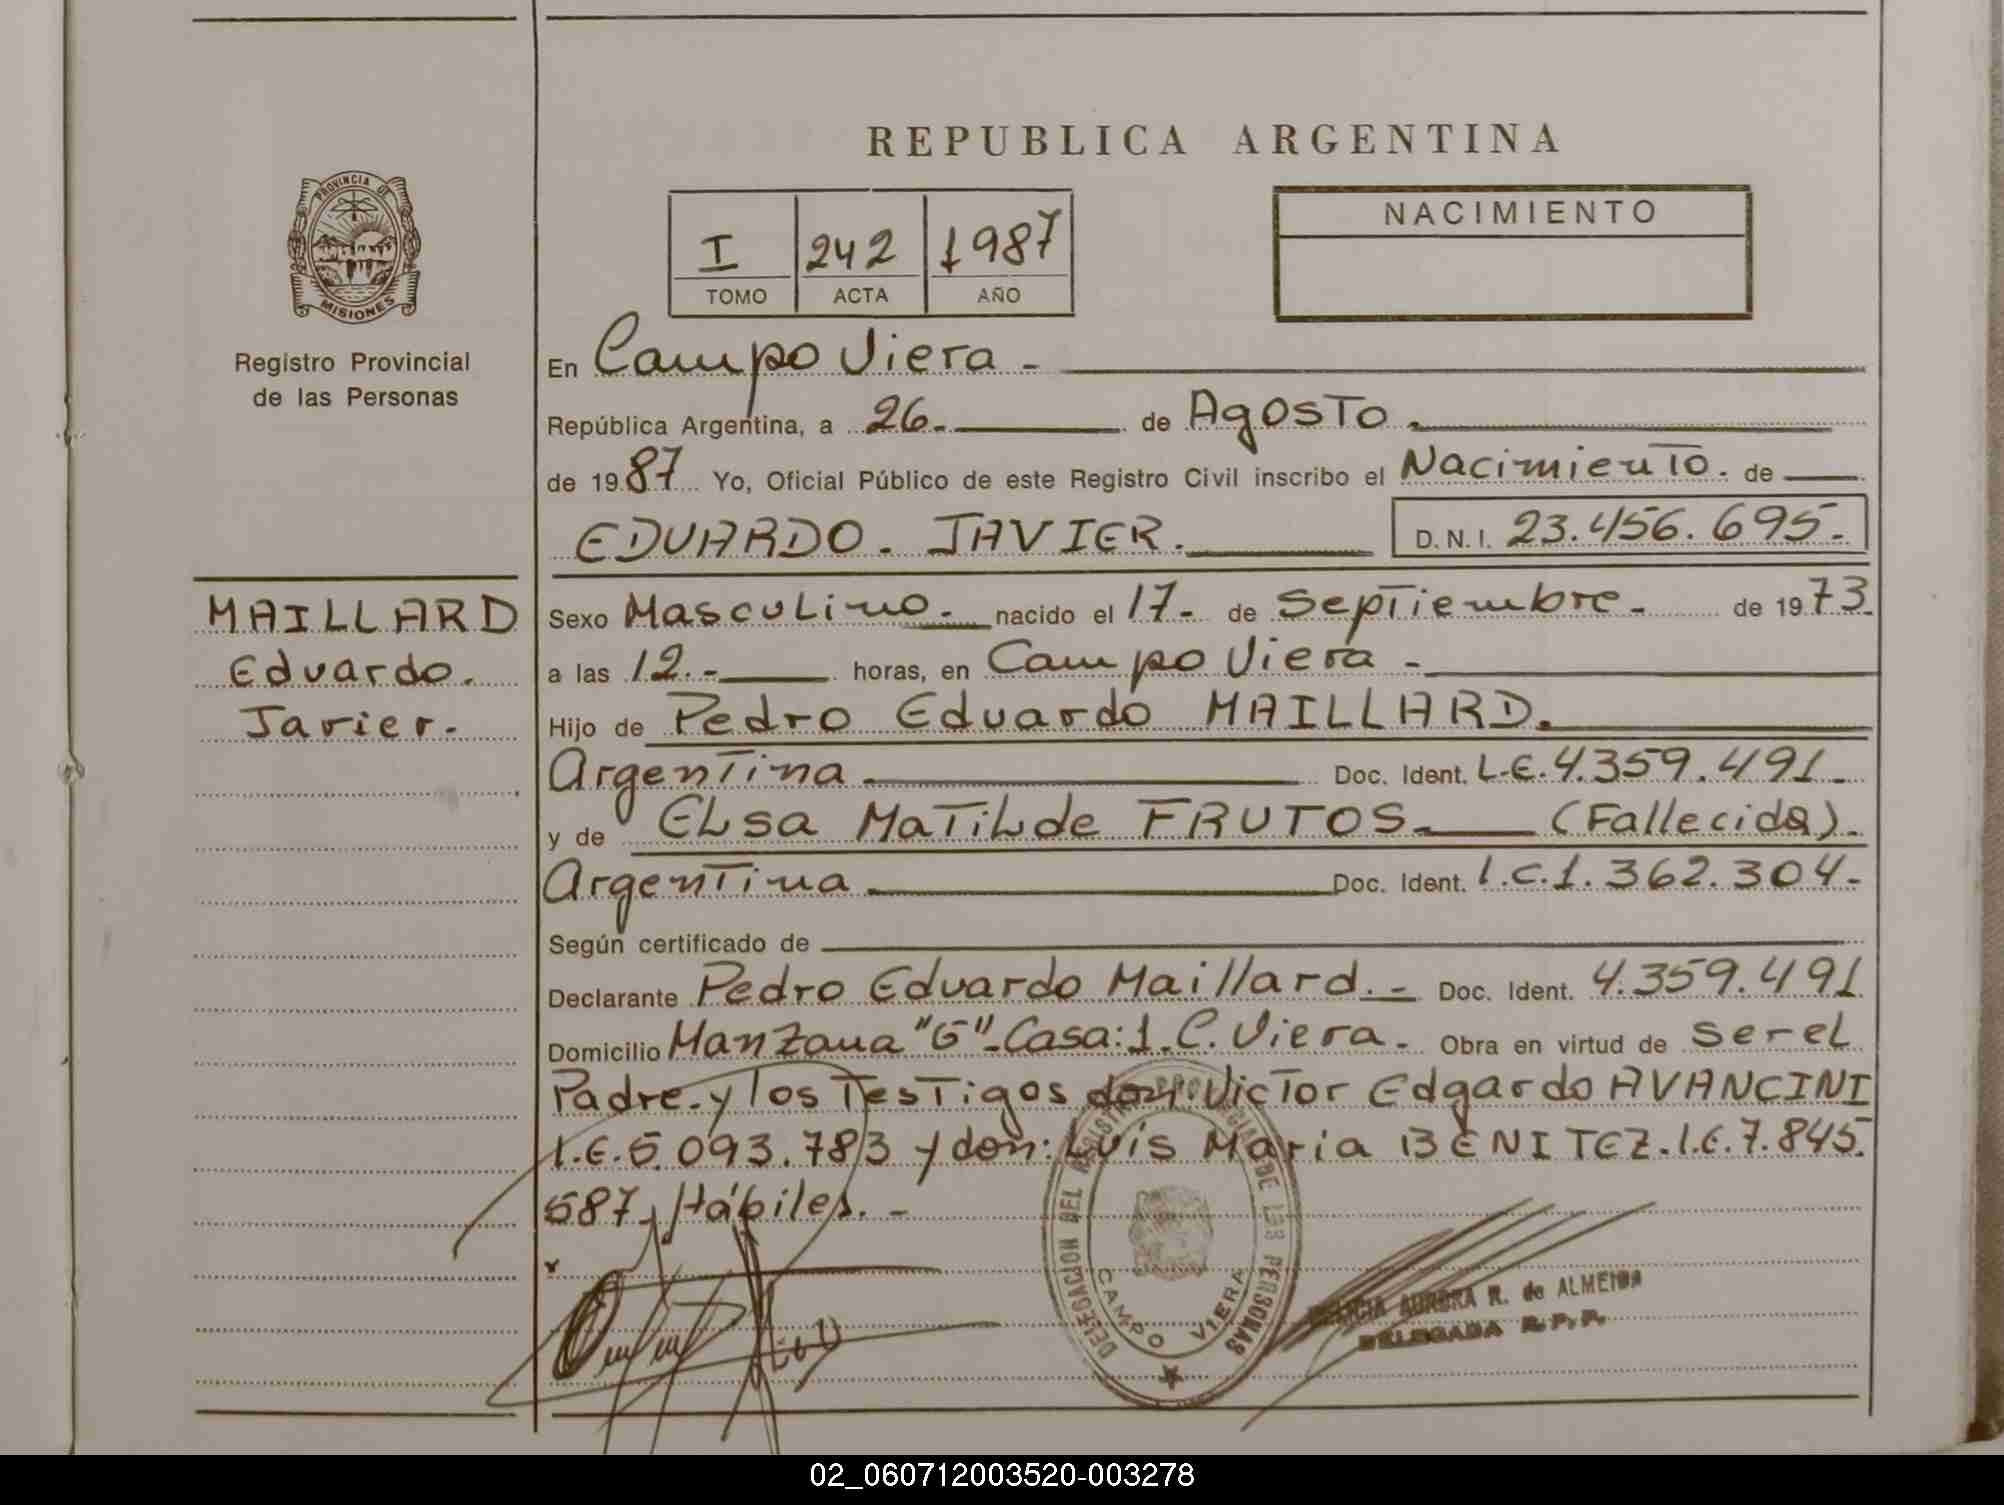 REPUBLICA ARGENTINA
PROVINCIA DE
MISIONES
Registro Provincial
de las Personas
I 242 1987
TOMO ACTA AÑO
NACIMIENTO
En Campo Viera -
República Argentina, a 26.- de Agosto.
de 1987 Yo, Oficial Público de este Registro Civil inscribo el Nacimiento. de
EDUARDO. JAVIER. D. N. I. 23.456.695.-
MAILLARD
Eduardo.
Javier.-
Sexo Masculino.- nacido el 17.- de Septiembre.- de 1973.
a las 12.- horas, en Campo Viera -
Hijo de Pedro Eduardo MAILLARD.
Argentina Doc. Ident. L.E. 4.359.491.-
y de ELSA MATILde FRUTOS.- (Fallecida).-
Argentina Doc. Ident. l.C.1.362.304.-
Según certificado de
Declarante Pedro Eduardo Maillard.- Doc. Ident. 4.359.491
Domicilio Manzana "G"-Casa:1.C.Viera.- Obra en virtud de ser eL
Padre.y los Testigos don: Victor Edgardo AVANCINI
l.E.5.093.783 y don: Luis Maria BENITEZ.l.E.7.845.
587. Hábiles.-
DELEGACION DEL REGISTRO PROVINCIAL DE LAS PERSONAS
CAMPO VIERA
AURORA R. de ALMEIDA
DELEGADA R.P.P.
02_060712003520-003278